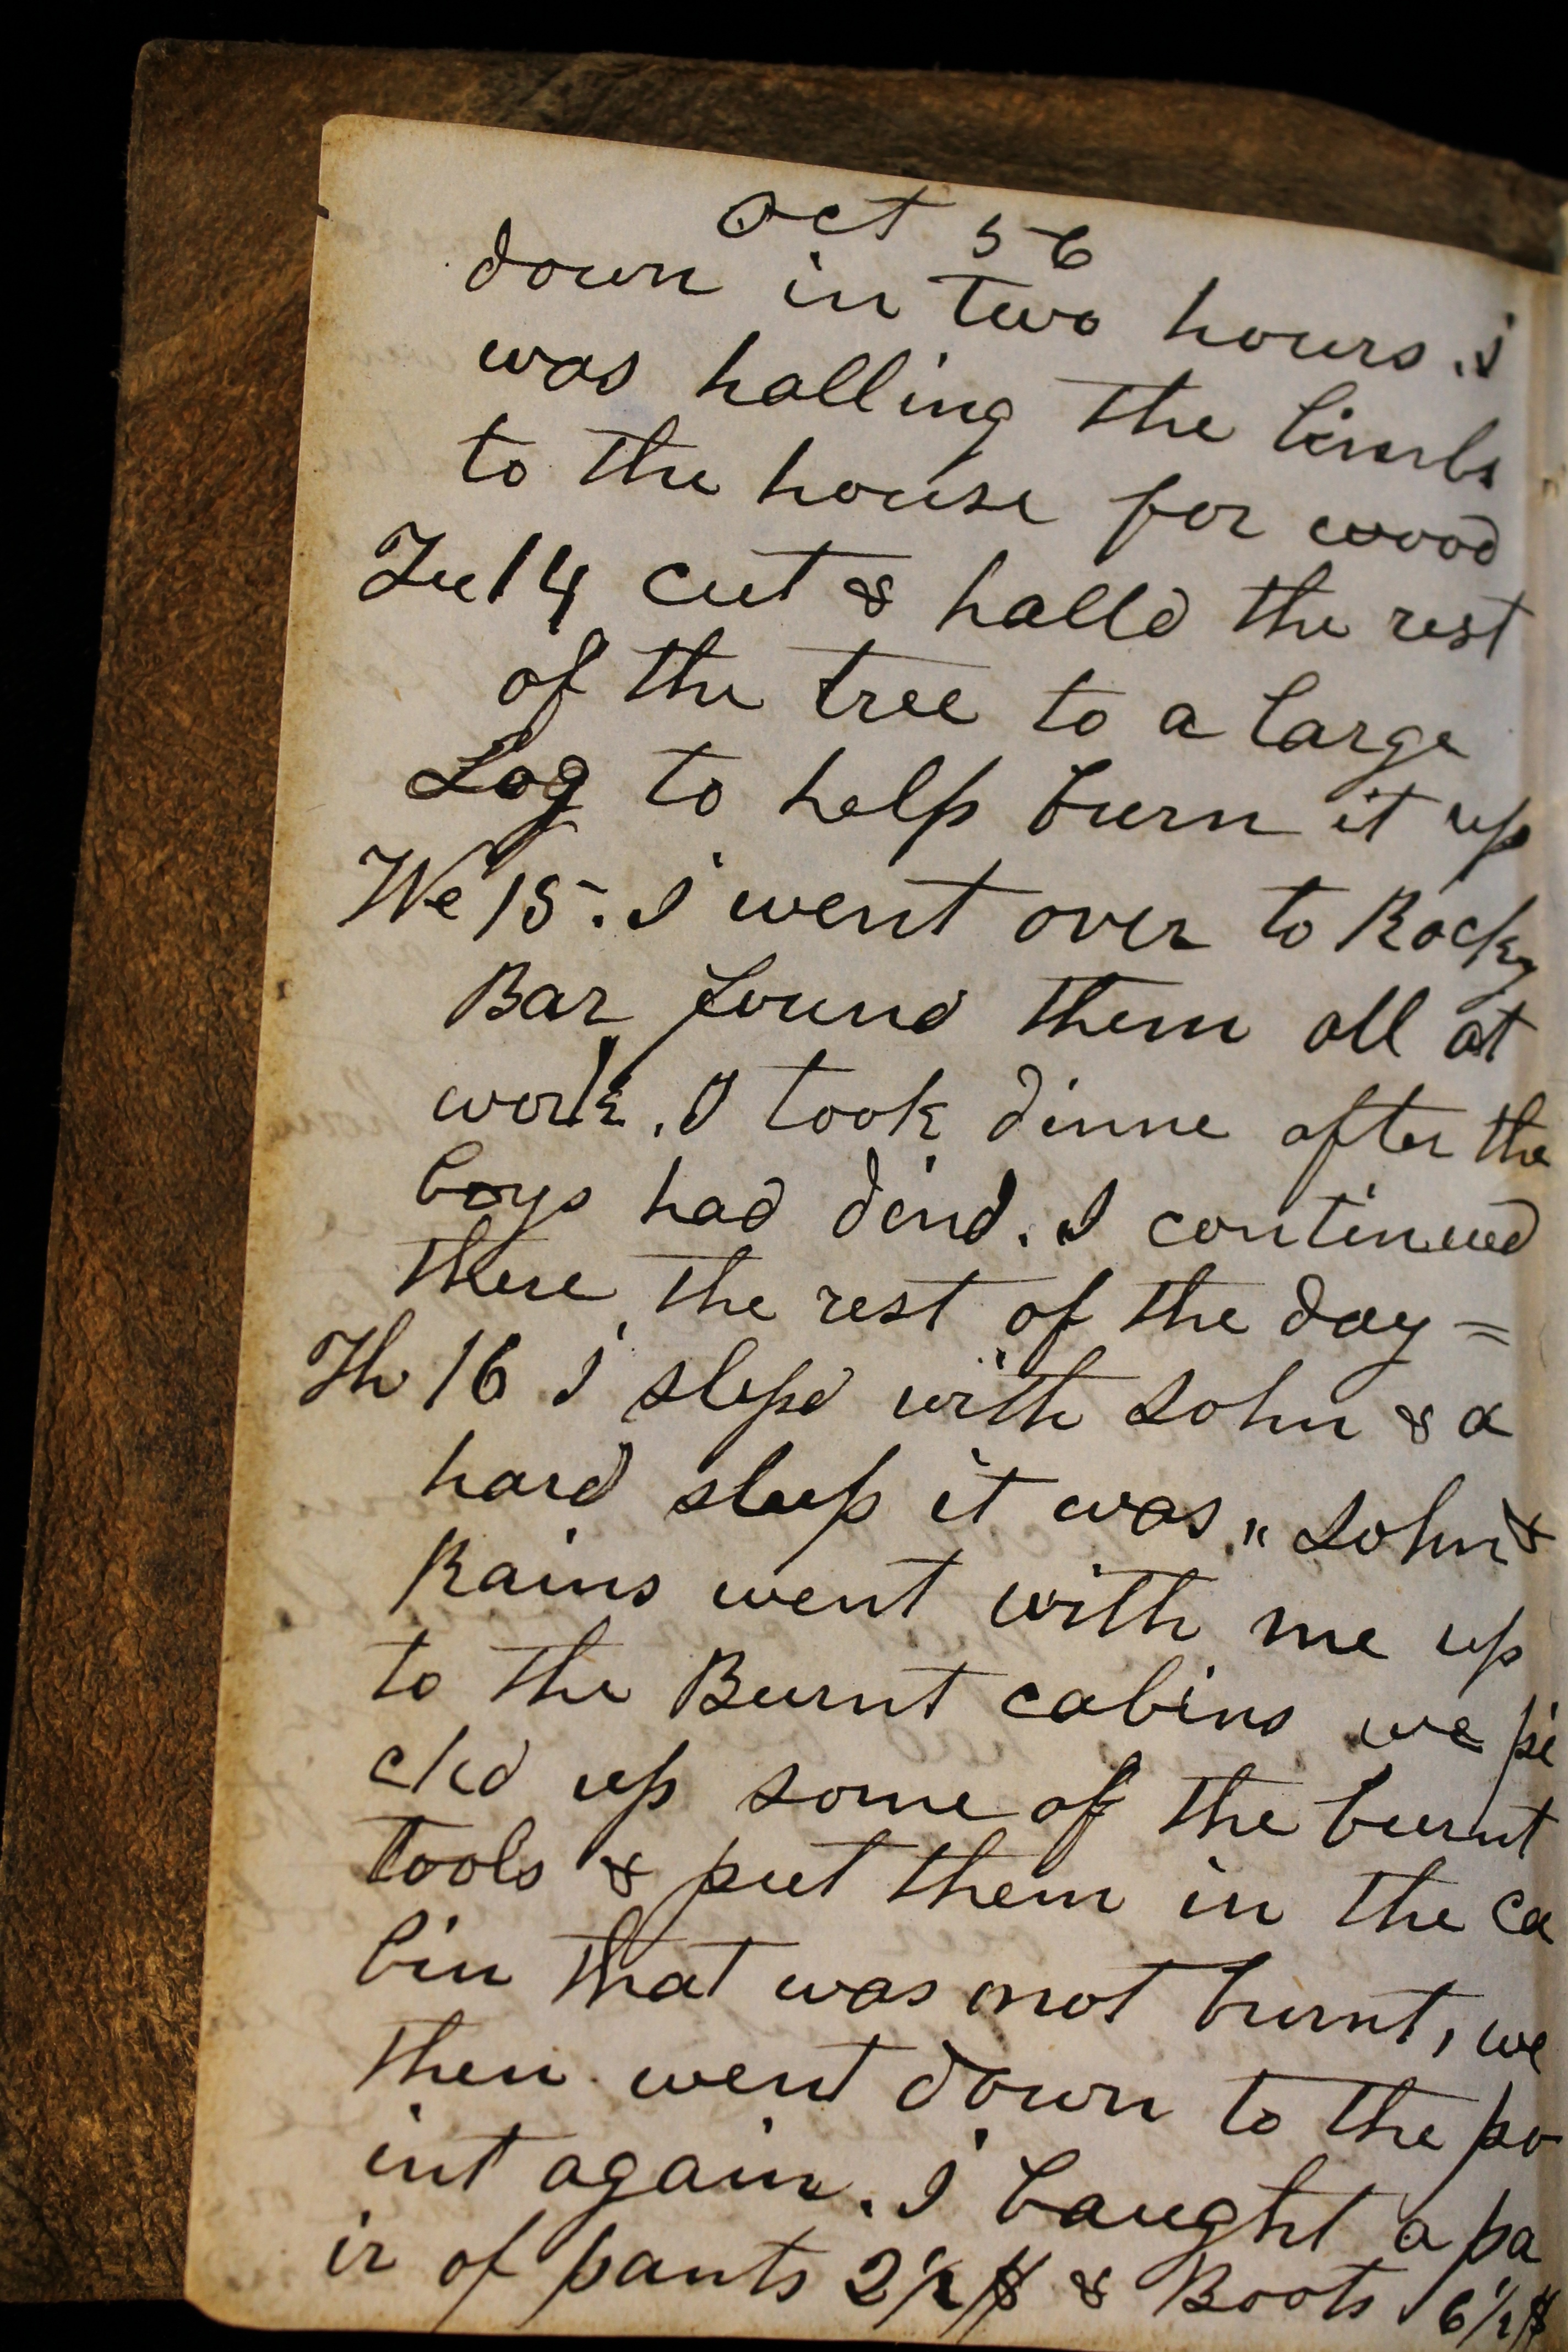 Oct 56
down in two hours. I
was halling the limbs
to the house for wood
Tu 14 cut & halld the rest
of the tree to a large
Log to help burn it up
We 15. I went over to Rocky
Bar found them all at
work. I took dinne after the
boys had dind. I continued
there the rest of the day =
Th 16 I slepd with John & a
hard sleep it was. " John &
Rains went with me up
to the Burnt cabins we pi
ckd up some of the burnt
tools & put them in the ca
bin that was not burnt, we
then went down to the po
int again. I baught a pa
ir of pants 2 1/2 $ & Boots 6 1/2 $